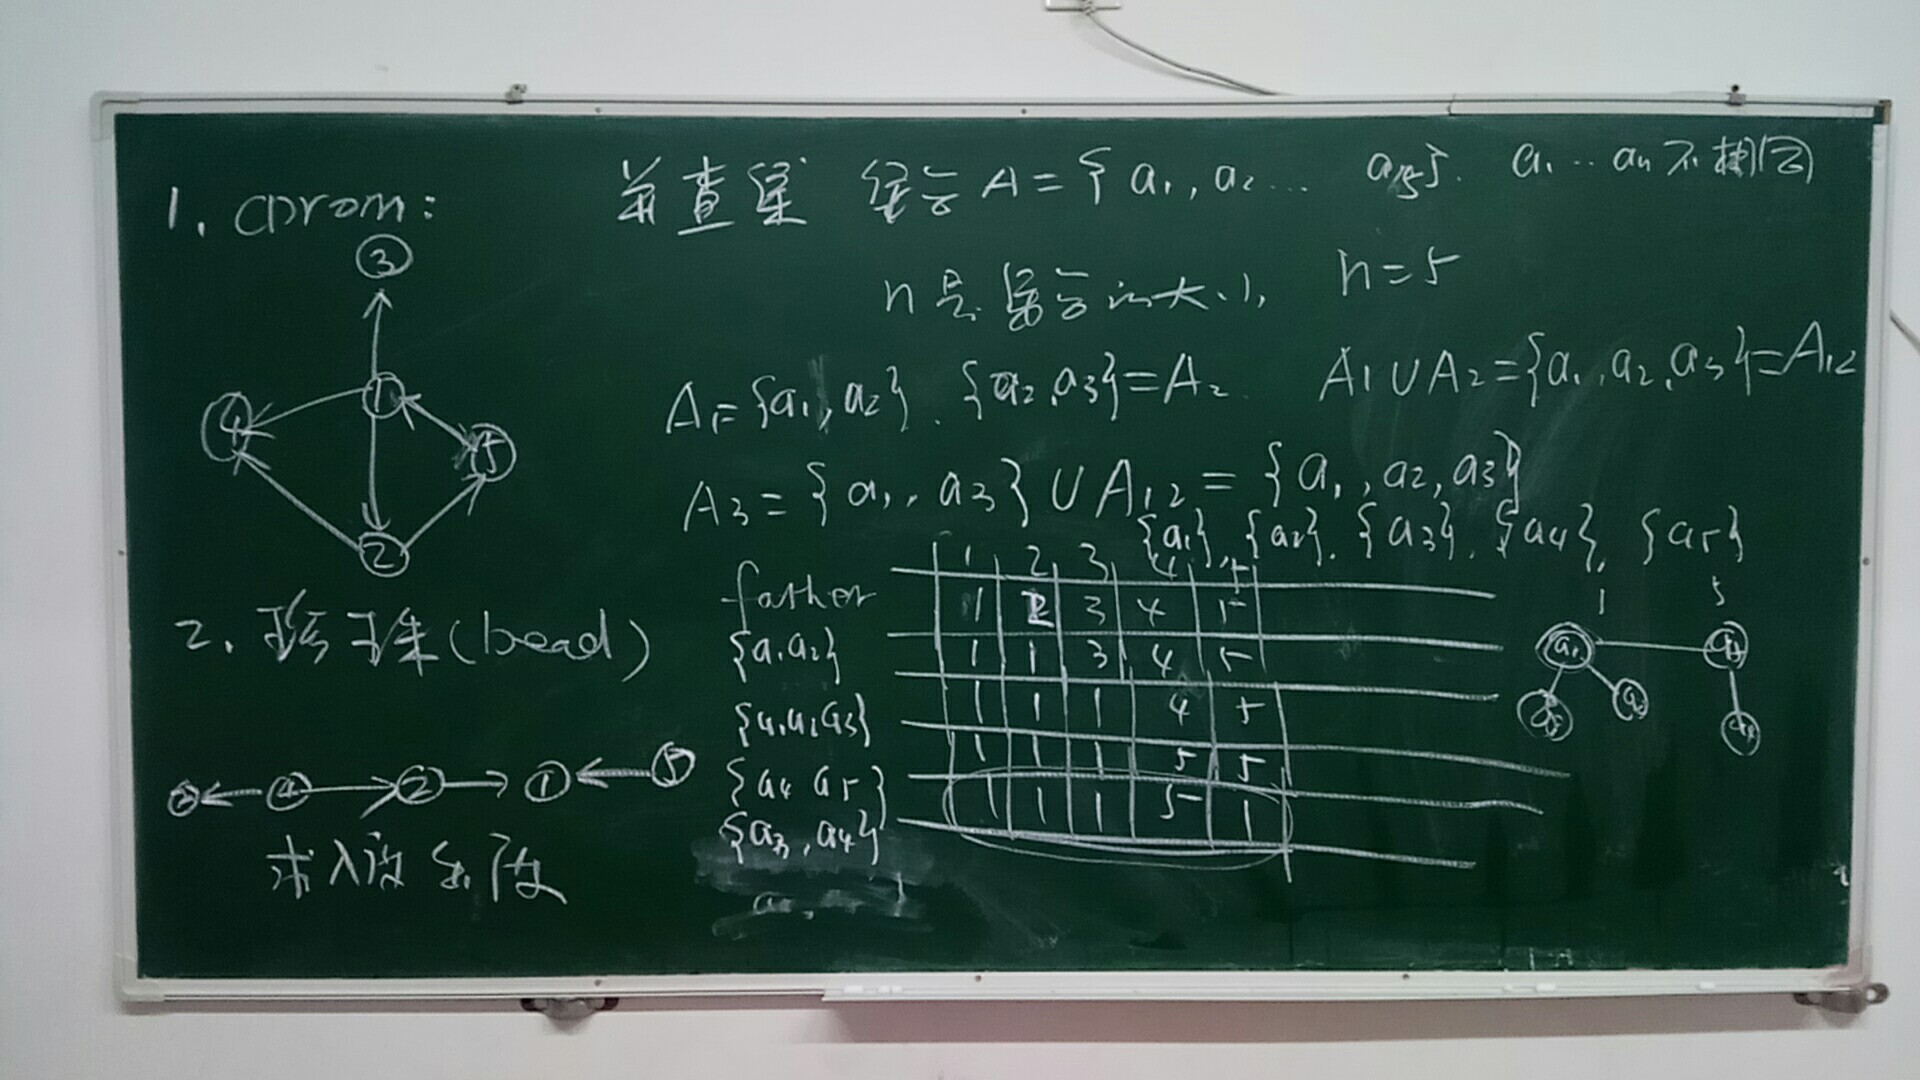 1. cprom:
③
④ ① ⑤
②
2. 珍珠(bead)
③ ④ ② ① ⑤
求入度 出度
并查集 集合A={a₁,a₂... a₅}. a₁...aₙ不相同
n是集合的大小, n=5
A₁={a₁,a₂}. {a₂,a₃}=A₂ A₁∪A₂={a₁,a₂,a₃}=A₁₂
A₃={a₁,a₃}∪A₁₂={a₁,a₂,a₃}
{a₁},{a₂}.{a₃}.{a₄},{a₅}
1 2 3 4 5
father 1 2 3 4 5
{a₁a₂} 1 1 3 4 5
{a₁a₂a₃} 1 1 1 4 5
{a₄ a₅} 1 1 1 5 5
{a₃,a₄} 1 1 1 5 1
1 5
a₁ a₅
a₂ a₄